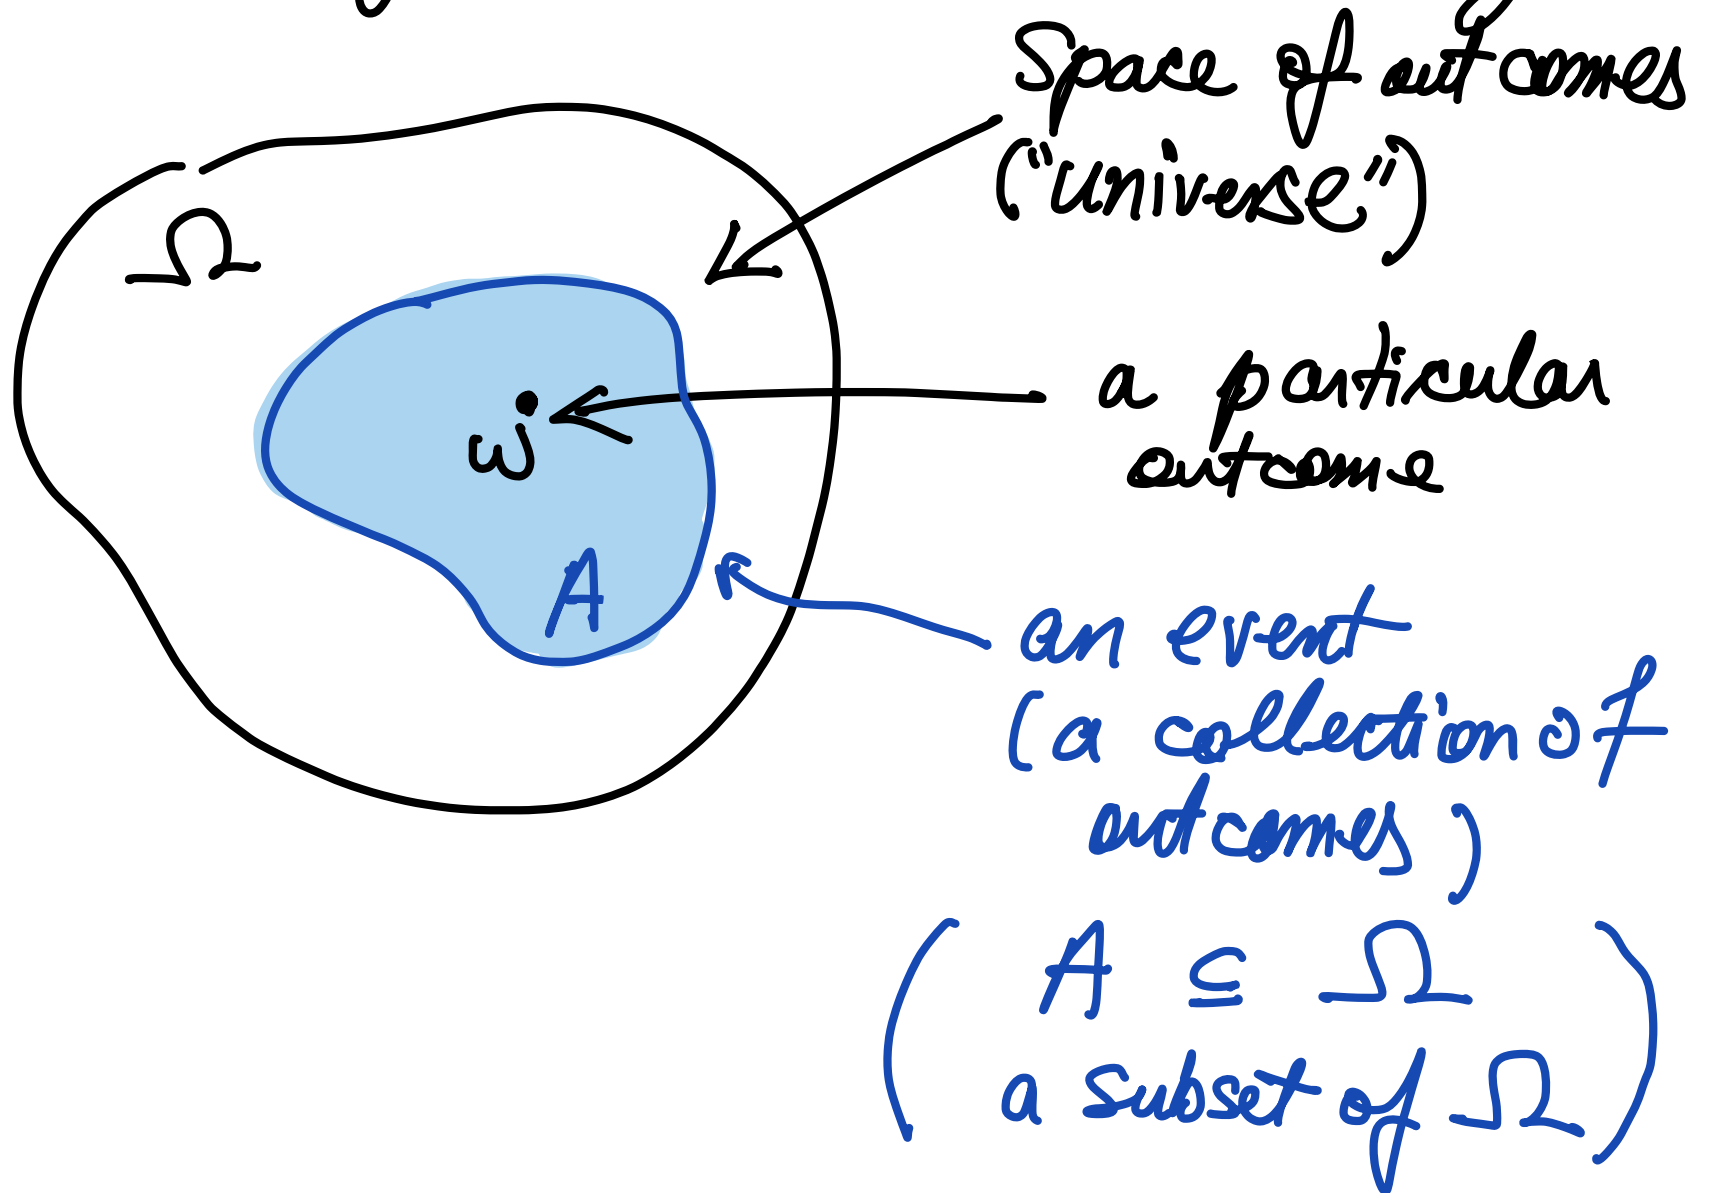 Space of outcomes
("universe")
Ω
a particular
outcome
ω
A
an event
(a collection of
outcomes)
( A ⊆ Ω
a subset of Ω )